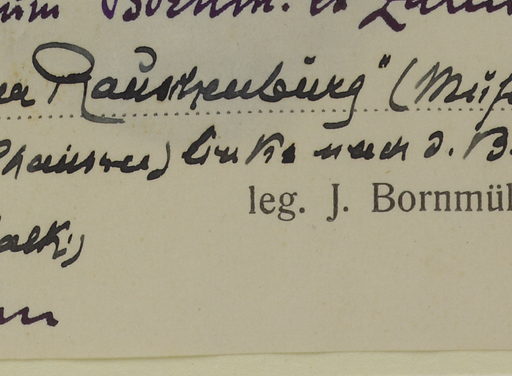 Bornm. et
Rauschenburg" (Müh
hausen) links nach d. B.
leg. J. Bornmül
alk;